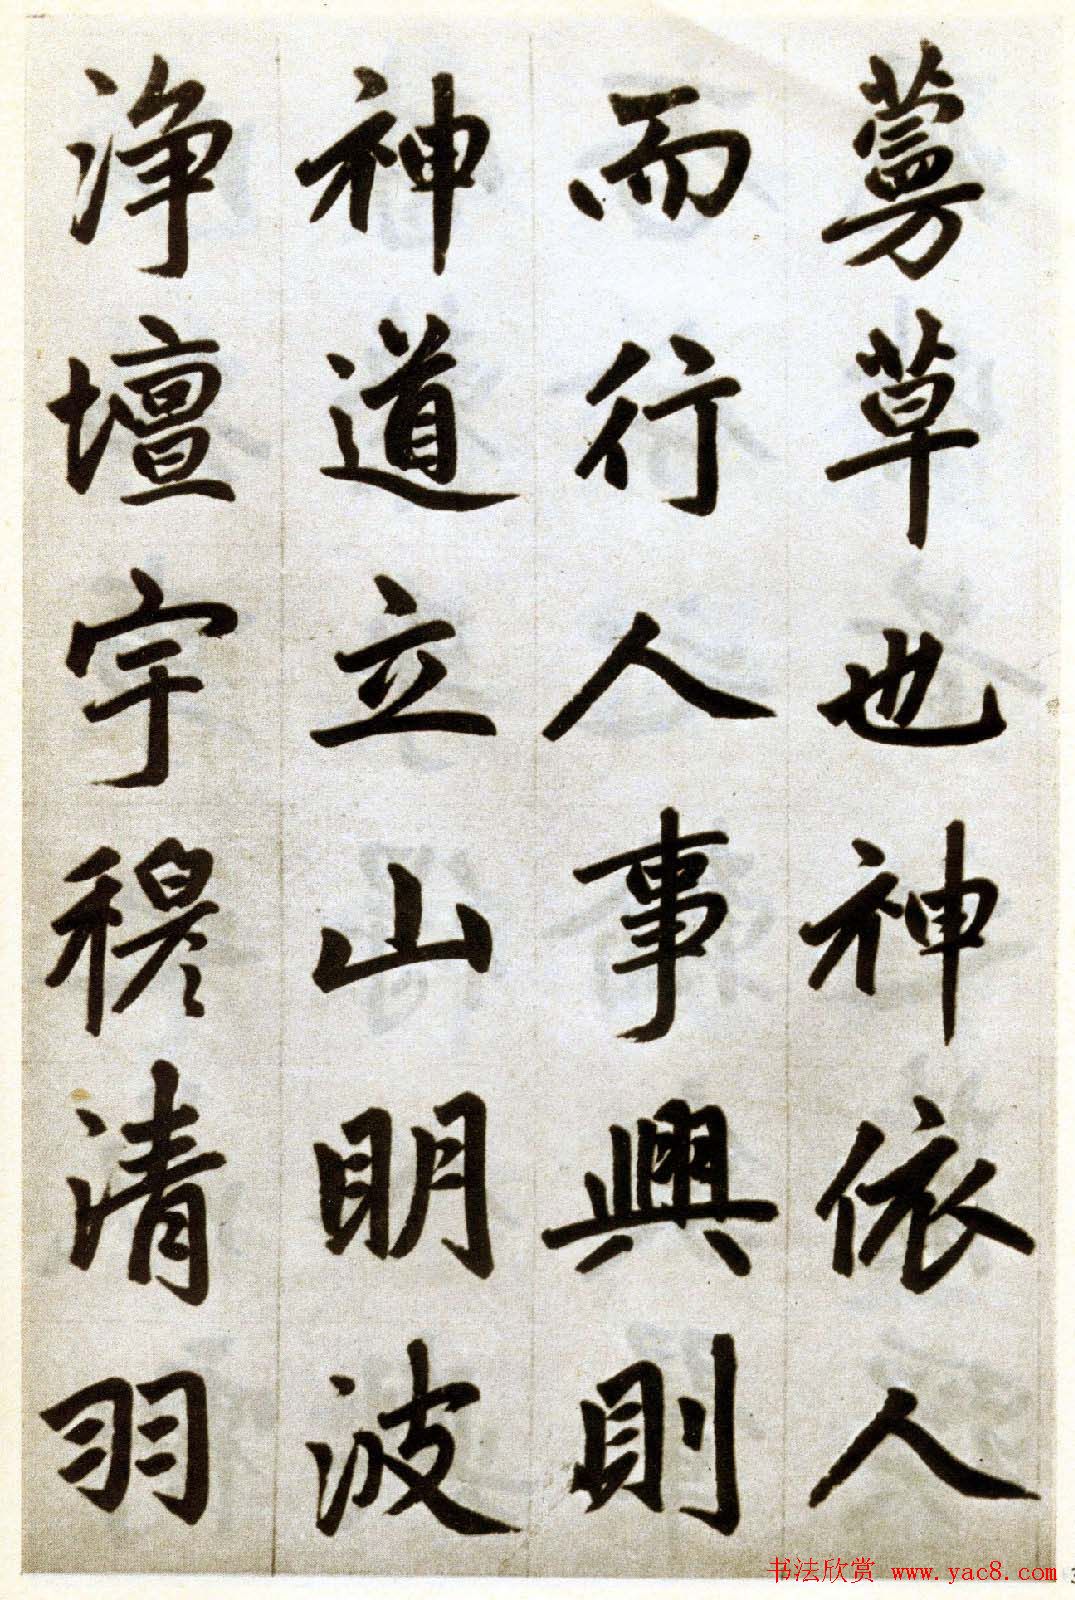 蔓草也神依人
而行人事興則
神道立山明波
淨壇宇穆清羽
书法欣赏 www.yac8.com